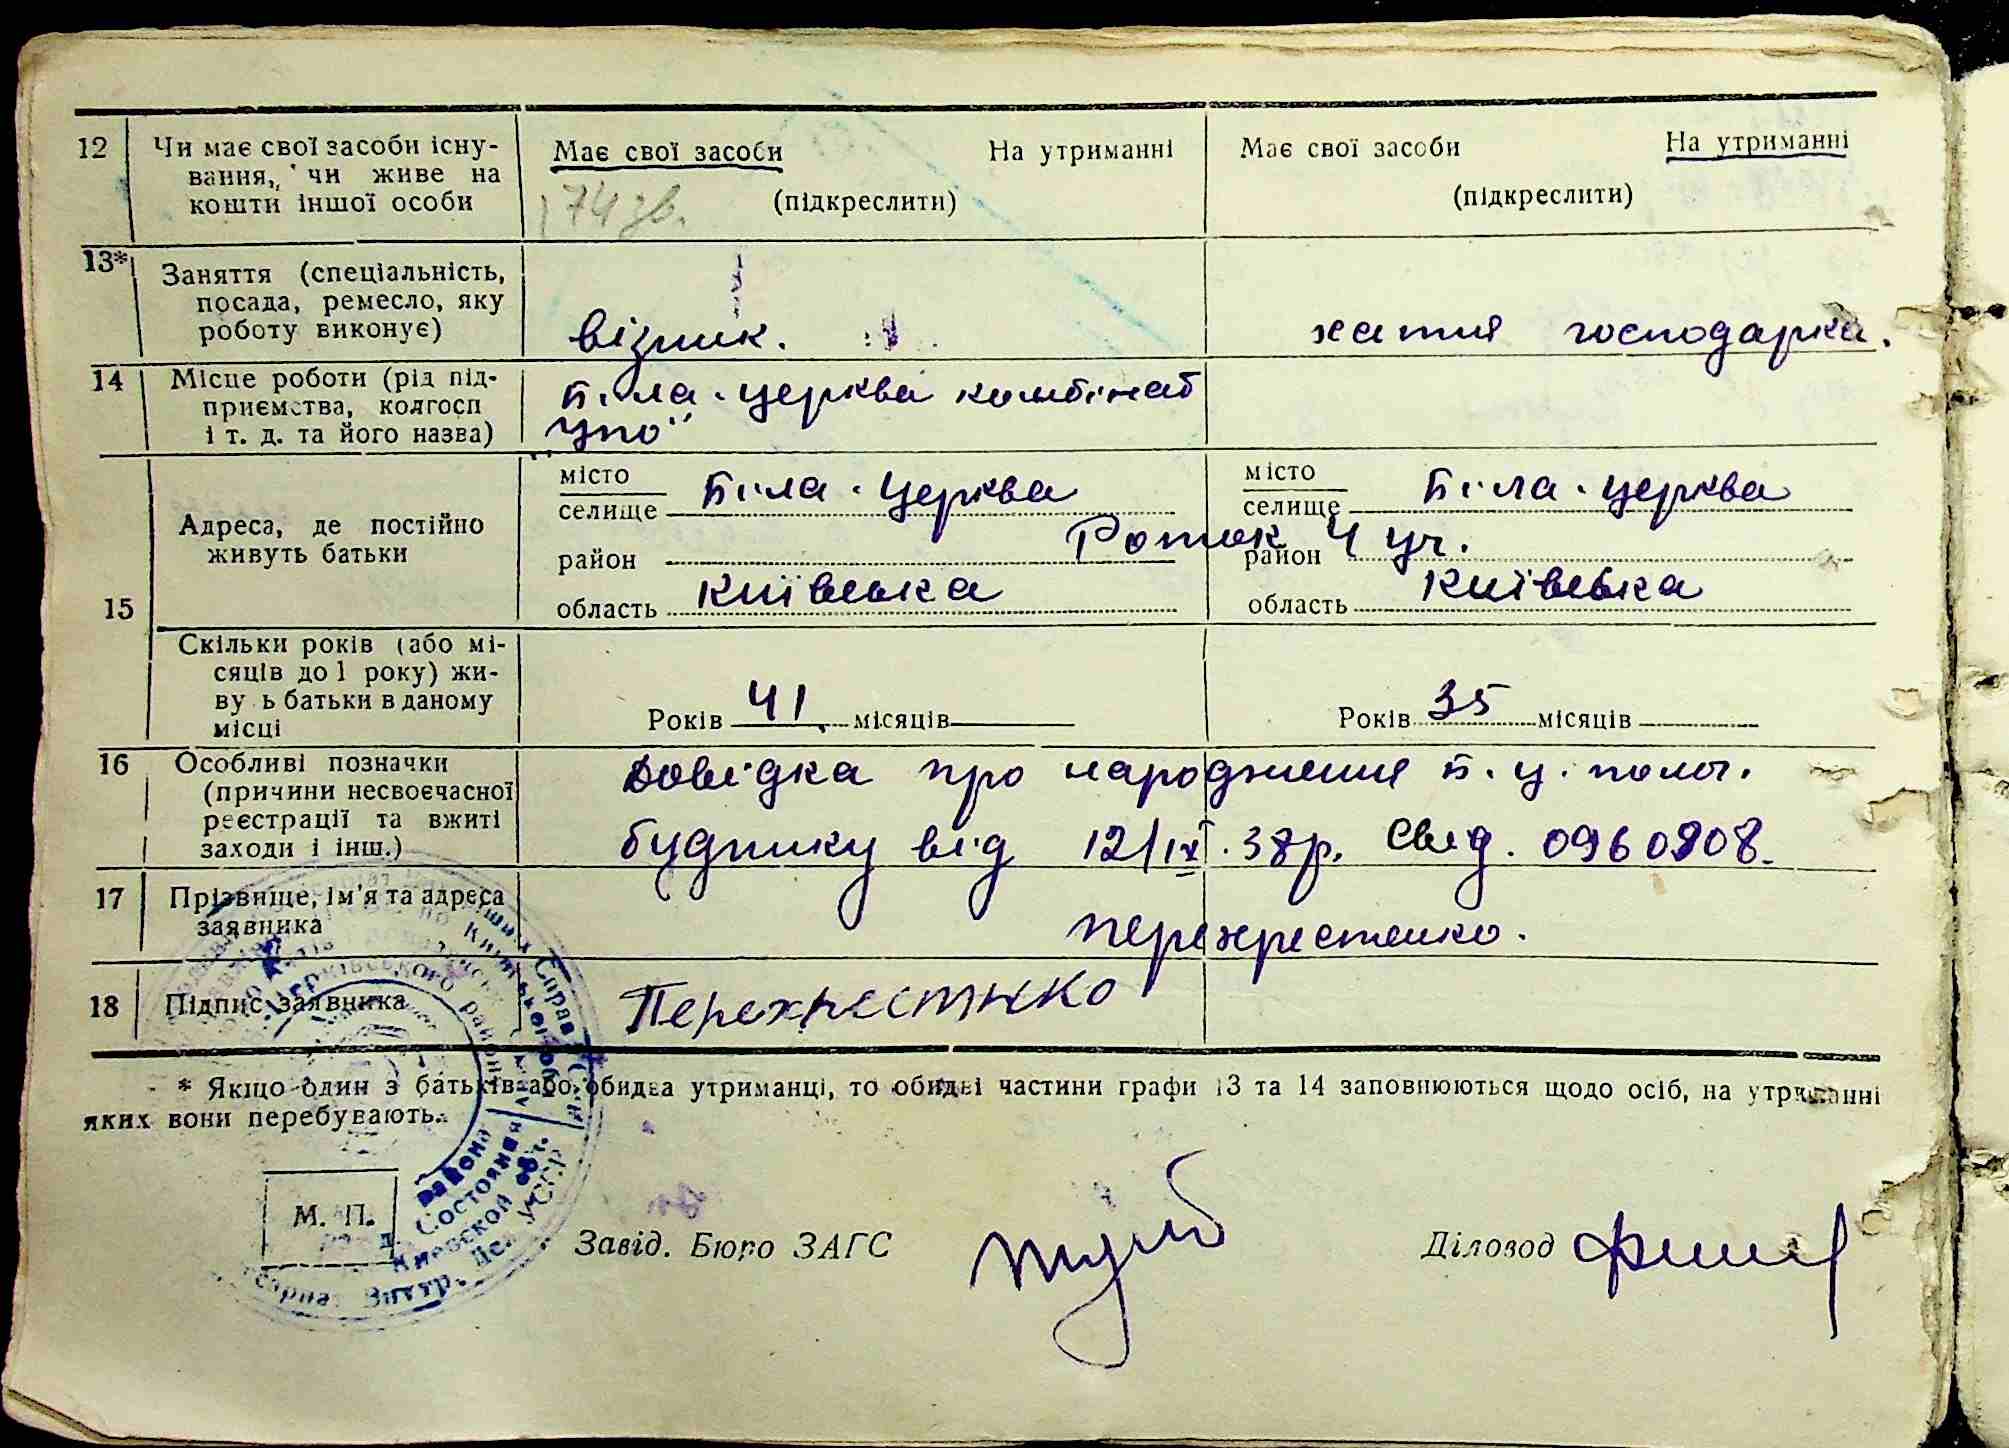 12 Чи має свої засоби існу- Має свої засоби На утриманні Має свої засоби На утриманні
вання, чи живе на
кошти іншої особи (підкреслити) (підкреслити)
174 зв.
13* Заняття (спеціальність,
посада, ремесло, яку
роботу виконує) візник. хатня господарка.
14 Місце роботи (рід під- Біла-церква комбінат
приємства, колгосп
і т. д. та його назва) упо"
15 Адреса, де постійно
живуть батьки
місто Біла-церква місто Біла-церква
селище селище
район Роток 4 уч. район
область київська область київська
Скільки років (або мі-
сяців до 1 року) жи-
ву ь батьки в даному
місці Років 41 місяців Років 35 місяців
16 Особливі позначки Довідка про народження Б. ц. полог.
(причини несвоєчасної
реєстрації та вжиті будинку від 12/IX.38р. Свід. 0960908.
заходи і інш.)
17 Прізвище, ім'я та адреса
заявника Перехрестенко.
18 Підпис заявника Перехрестнко
* Якщо один з батьків або обидва утриманці, то обидві частини графи 13 та 14 заповнюються щодо осіб, на утриманні
яких вони перебувають.
М. П.
района
Состояния
Киевской обл.
Внутр. Дел УССР
Завід. Бюро ЗАГС Діловод